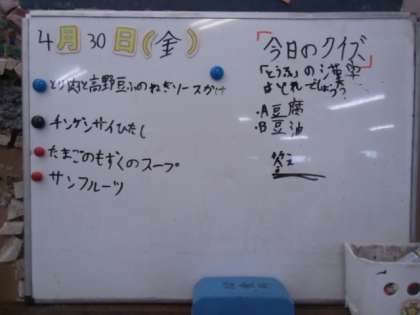 4月30日(金)
とり肉と高野豆ふのねぎソースかけ
チンゲンサイひたし
たまごのもずくのスープ
サンフルーツ
「今日のクイズ」
「とうふ」の漢字
はどれでしょう?
・A豆腐
・B豆油
答え